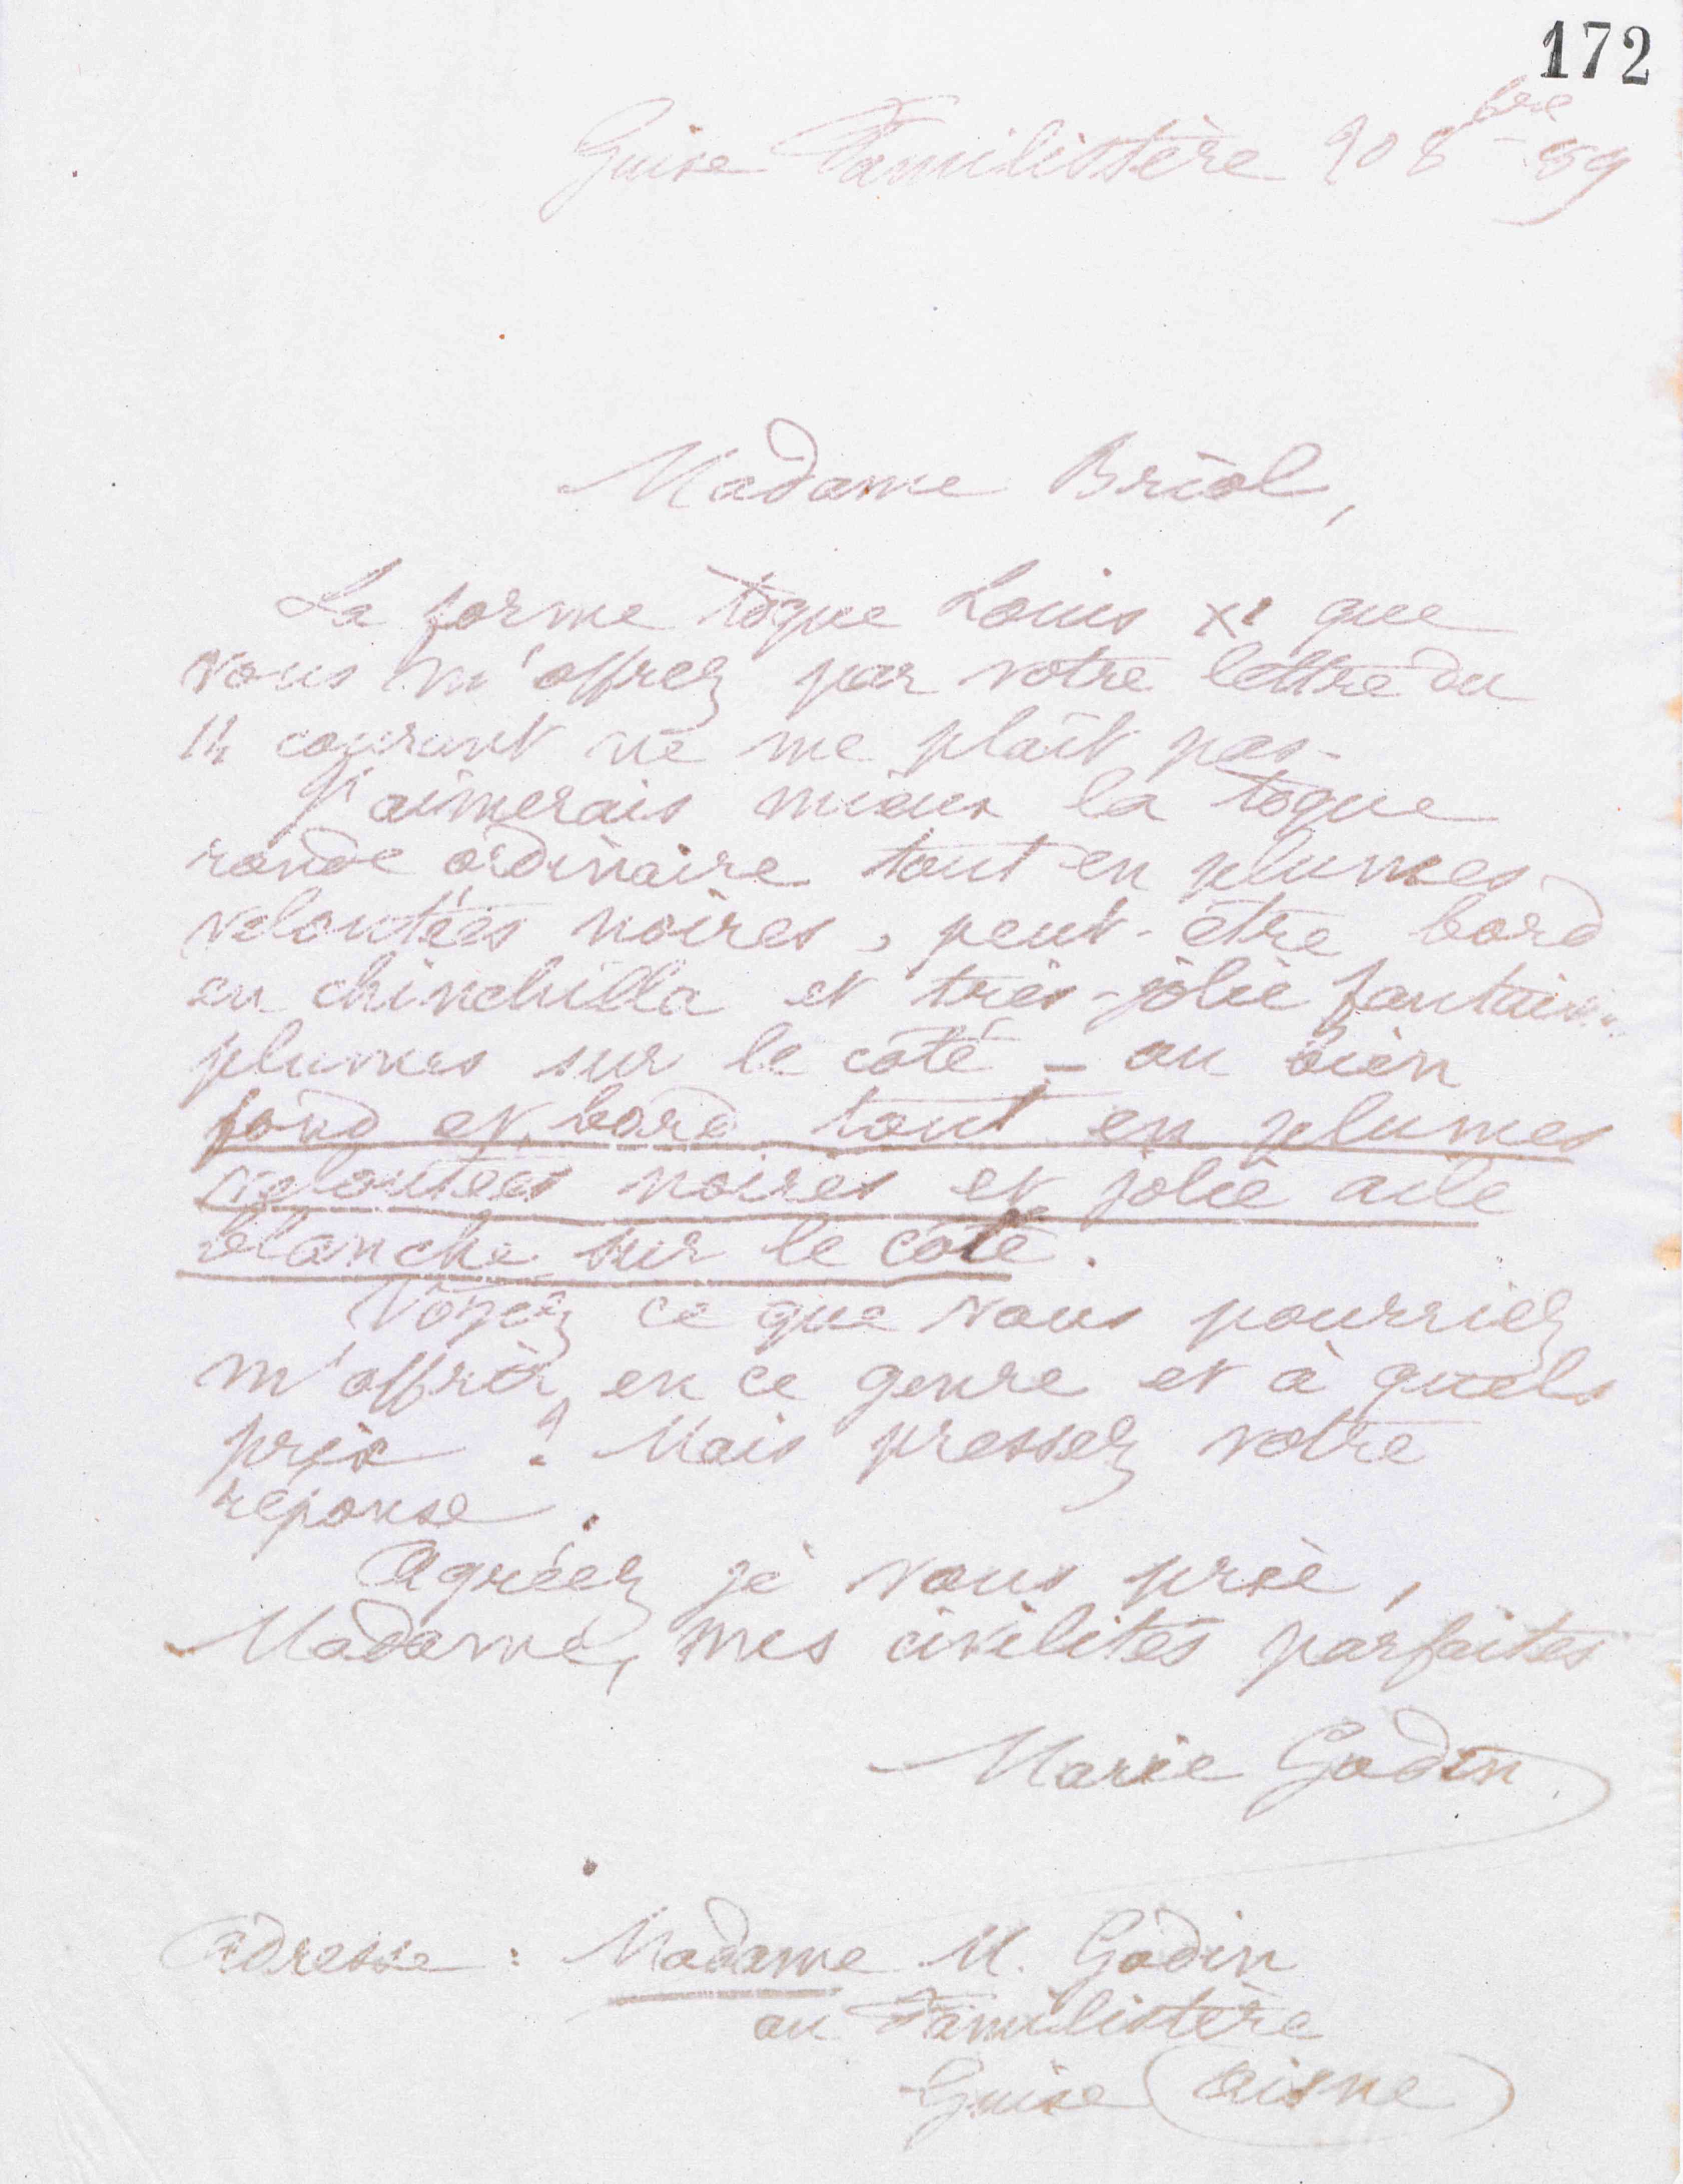 172
Guise Familistère 20 8bre 89
Madame Briol,
La forme toque Louis XI que
vous m'offrez par votre lettre du
14 courant ne me plaît pas.
J'aimerais mieux la toque
ronde ordinaire tout en plumes
veloutées noires, peut-être bord
en chinchilla et très-jolie
plumes sur le côté - ou bien
fond et bord tout en plumes
veloutées noires et jolie aile
blanche sur le côté.
Voyez ce que vous pourriez
m'offrir en ce genre et à quels
prix ? Mais pressez votre
réponse.
Agréez je vous prie,
Madame, mes civilités parfaites
Marie Godin
Adresse : Madame M. Godin
au Familistère
Guise (Aisne)